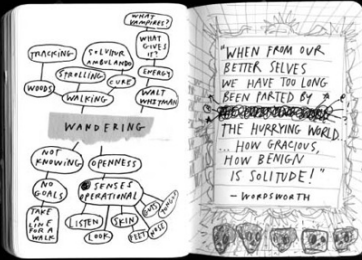 WHAT VAMPIRES?
WHAT GIVES IT?
ENERGY
WALT WHITMAN
TRACKING
SOLVITUR AMBULANDO
STROLLING
CURE
WOODS
WALKING
WANDERING
NOT KNOWING
OPENNESS
NO GOALS
SENSES OPERATIONAL
TAKE A LINE FOR A WALK
LISTEN
LOOK
SKIN
FEET
NOSE
GUTS
TONGUE
"WHEN FROM OUR
BETTER SELVES
WE HAVE TOO LONG
BEEN PARTED BY
THE HURRYING WORLD.
... HOW GRACIOUS,
HOW BENIGN
IS SOLITUDE!"
- WORDSWORTH